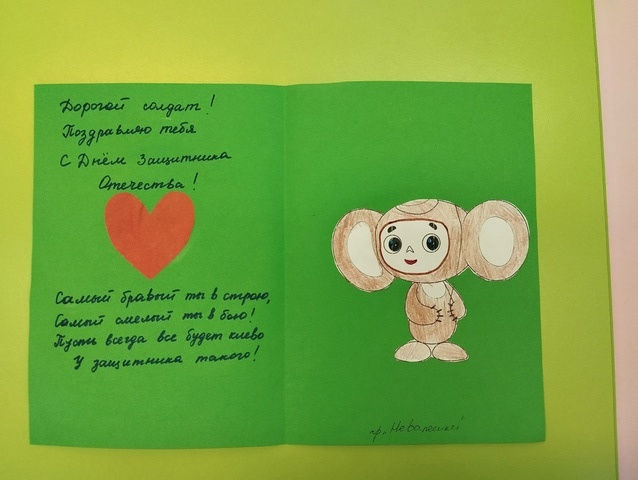 Дорогой солдат!
Поздравляю тебя
С Днём Защитника
Отечества!
Самый бравый ты в строю,
Самый смелый ты в бою!
Пусть всегда все будет клево
У защитника такого!
гр. „Неваляшки"